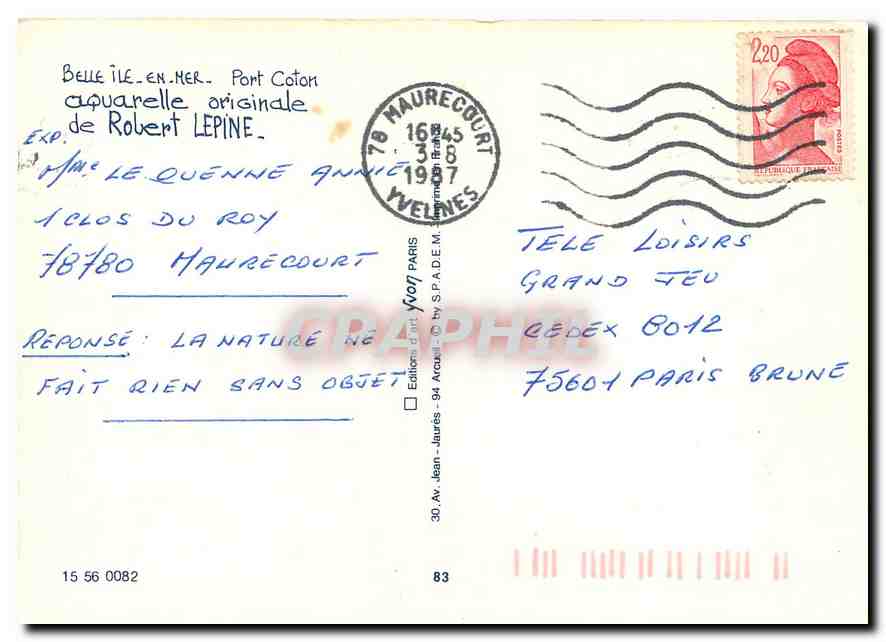 BELLE ÎLE-EN-MER- Port Coton
aquarelle originale
de Robert LEPINE-
EXP.
M/Me LE QUENNE ANNIE
1 CLOS DU ROY
78780 MAURECOURT
RÉPONSE : LA NATURE NE
FAIT RIEN SANS OBJET
15 56 0082
78 MAURECOURT
16H45
3-8
1987
YVELINES
2,20
POSTES
REPUBLIQUE FRANÇAISE
Editions d'art Yvon PARIS
30. Av. Jean - Jaurès - 94 Arcueil - © by S.P.A.D.E.M. - Imprimé en France
83
TELE LOISIRS
GRAND JEU
CEDEX 8012
75601 PARIS BRUNE
CPAPHIL